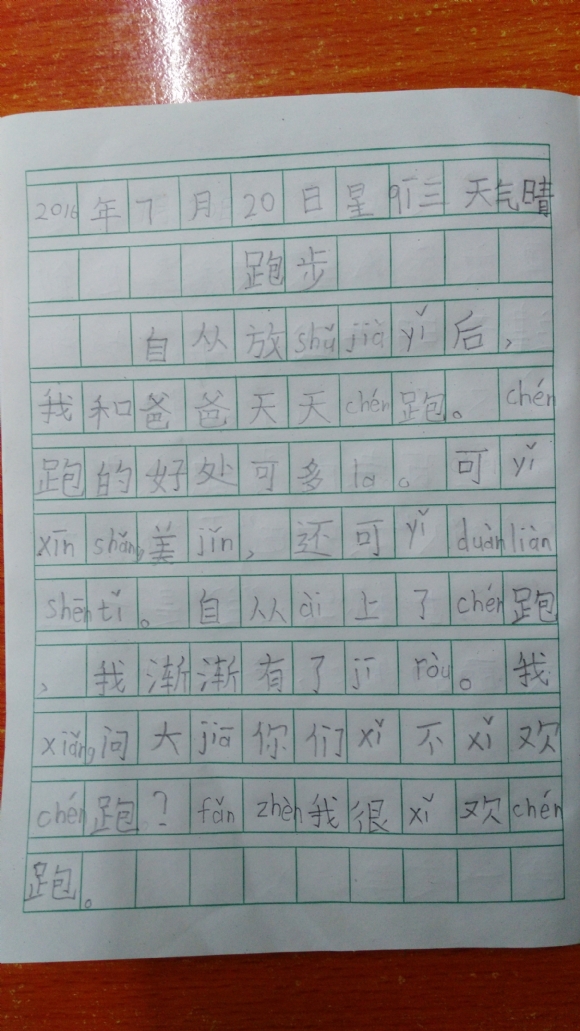 2016年7月20日星qī三 天气晴
跑步
自从放shǔ jià yǐ后，
我和爸爸天天chén跑。chén
跑的好处可多la。可yǐ
xīn shǎng美jǐn，还可yǐ duàn liàn
shēn tǐ。自从ài上了chén跑
，我渐渐有了jī ròu。我
xiǎng问大jiā你们xǐ不xǐ欢
chén跑？fǎn zhèn我很xǐ欢chén
跑。